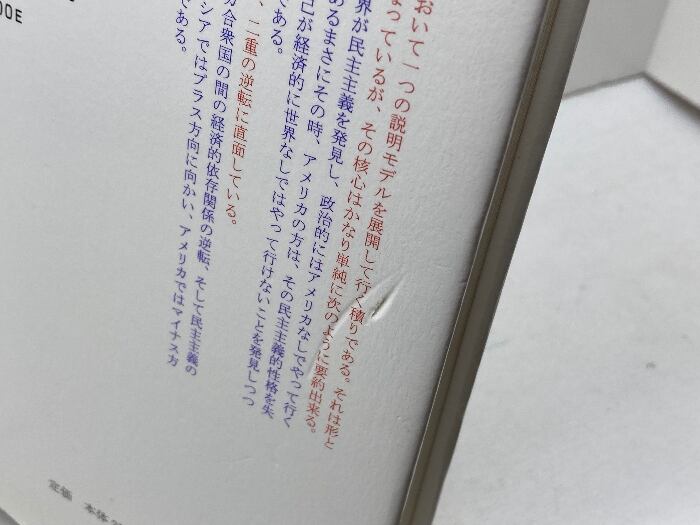 おいて一つの説明モデルを展開して行く積りである。それは形と
なっているが、その核心はかなり単純に次のように要約出来る。
界が民主主義を発見し、政治的にはアメリカなしでやって行く
あるまさにその時、アメリカの方は、その民主主義的性格を失
己が経済的に世界なしではやって行けないことを発見しつつ
である。
、二重の逆転に直面している。
合衆国の間の経済的依存関係の逆転、そして民主主義の
シアではプラス方向に向かい、アメリカではマイナス方
である。
定価 本体
00E